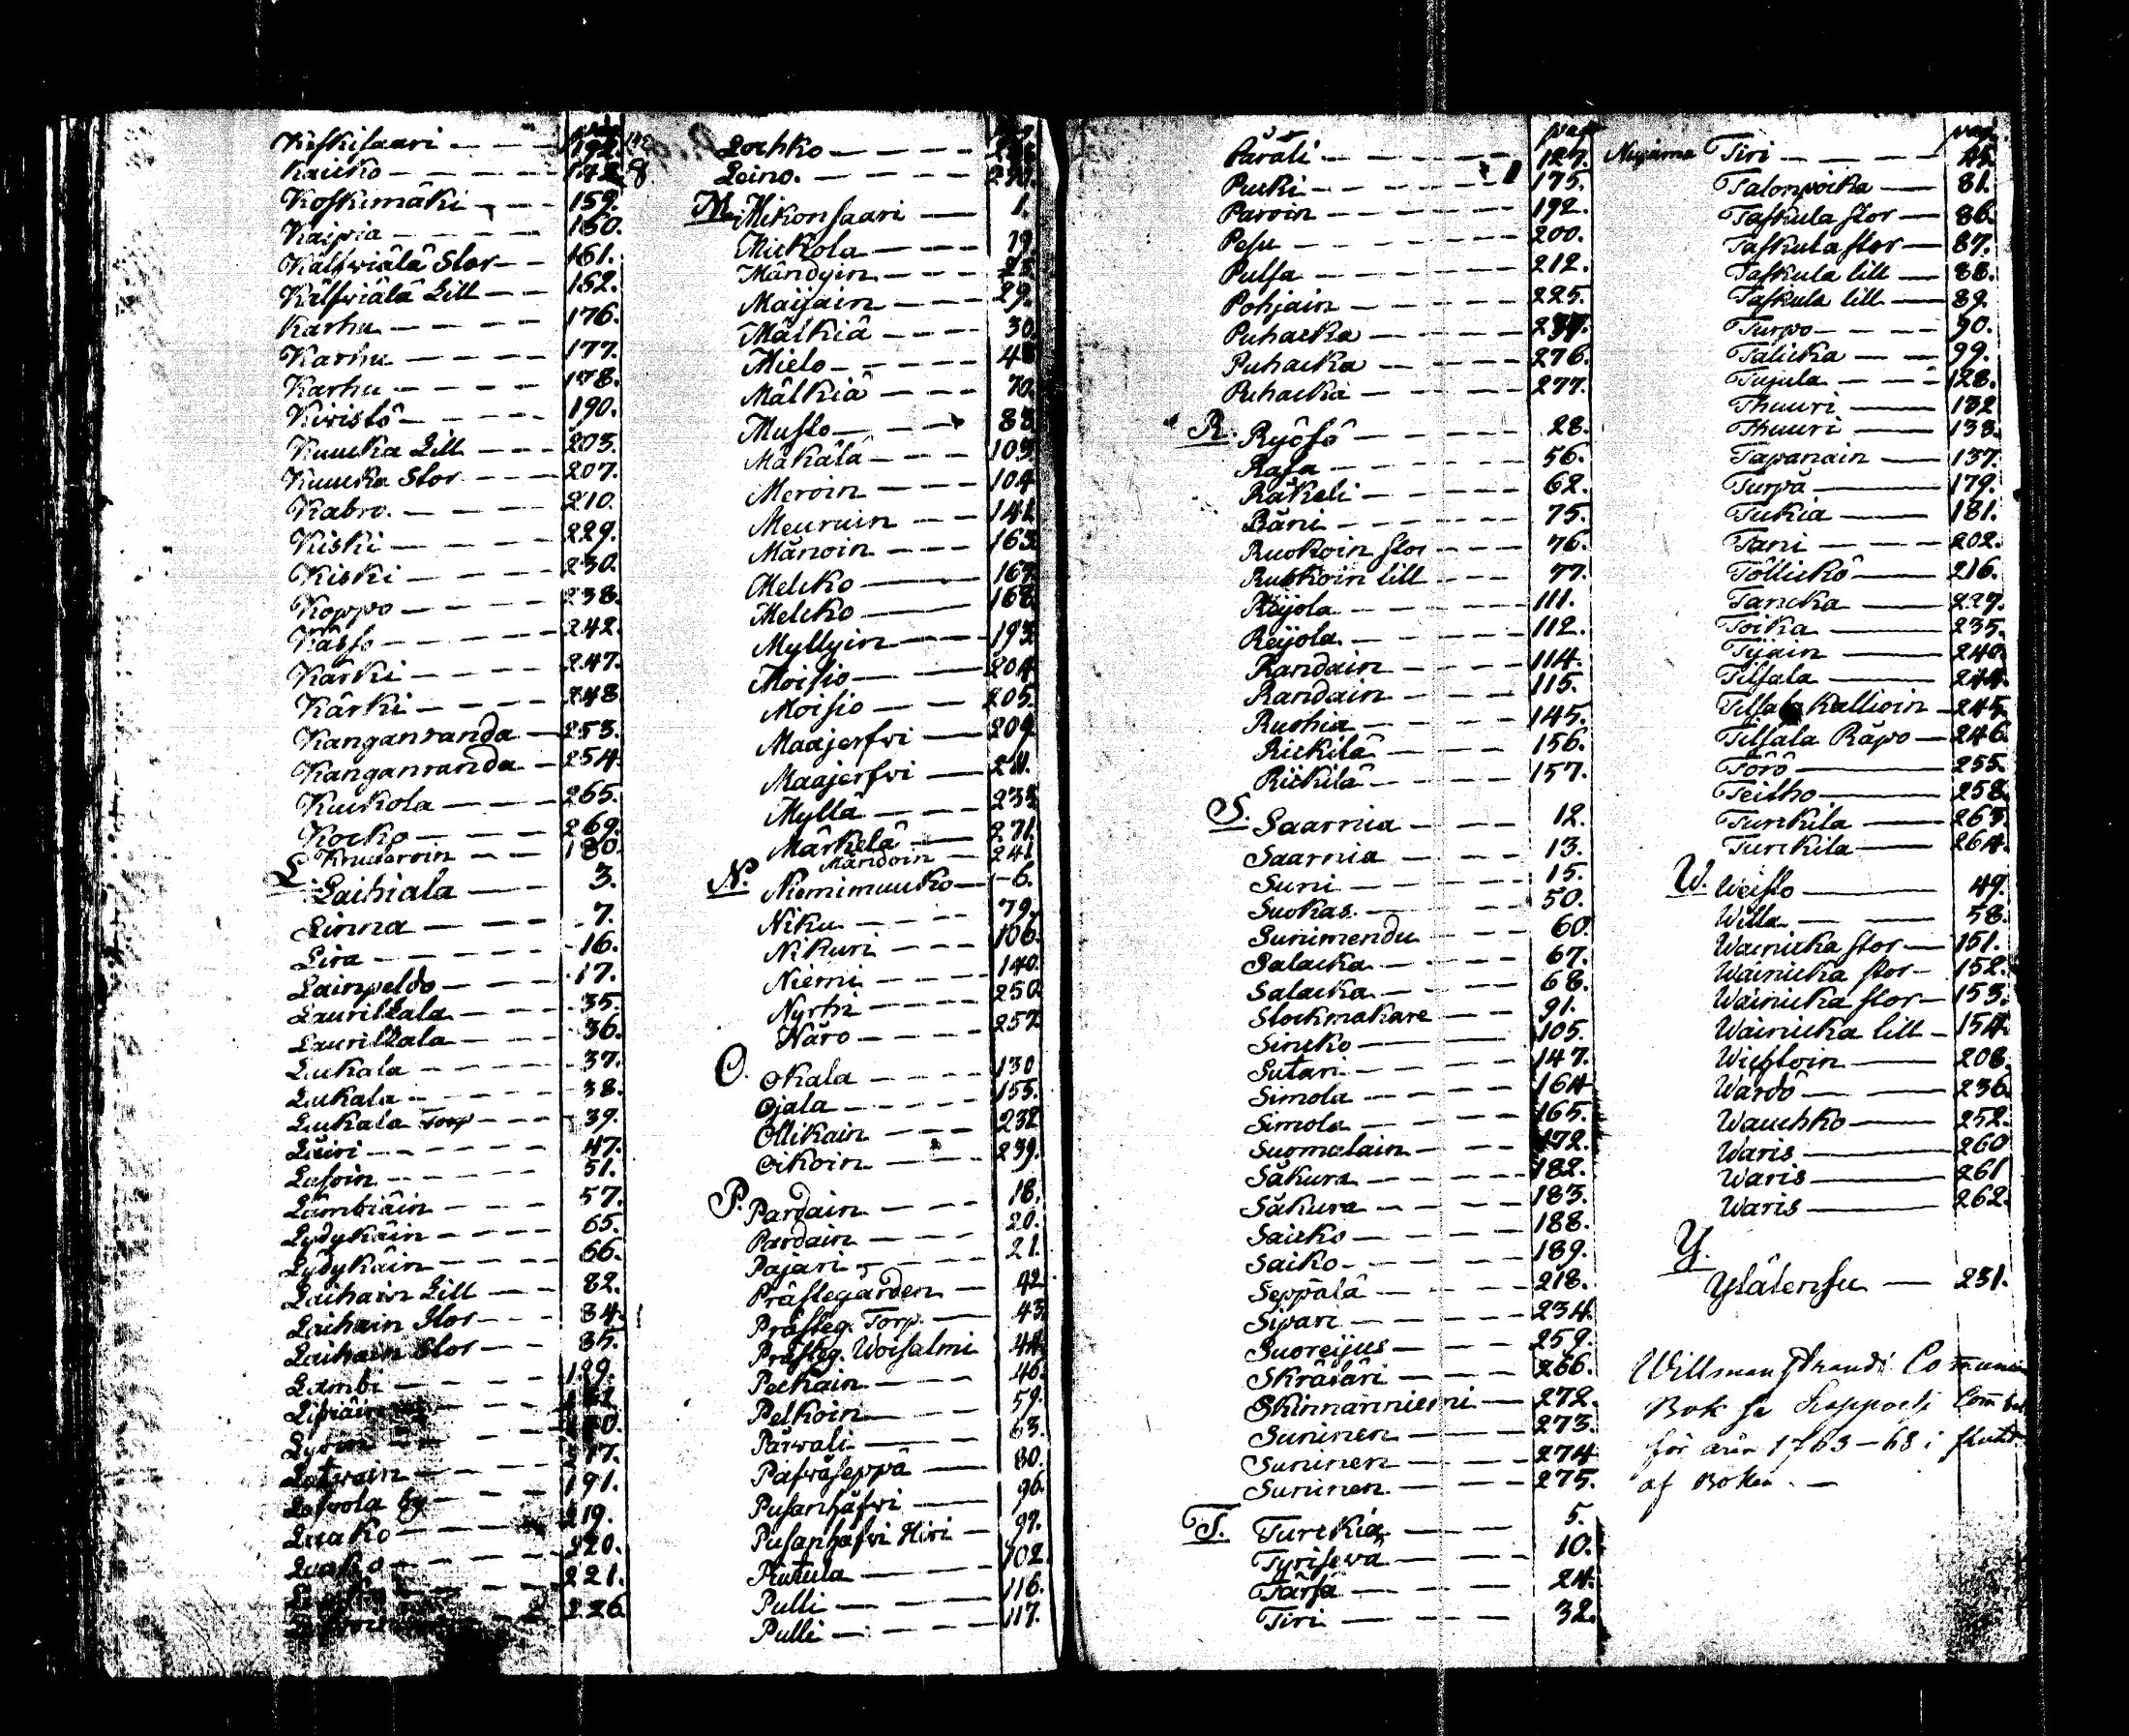 pag.
Kiskilaari — 192.
Kaicko — 142 8
Koskimäki — 159.
Kaipia — 160.
Kälfwiälä Stor — 161.
Kälfwiälä Lill — 162.
Karhu — 176.
Karhu — 177.
Karhu — 178.
Kiristö — 190.
Kuucka Lill — 203.
Kuucka Stor — 207.
Kabro. — 210.
Kiski — 229.
Kiski — 230.
Koppo — 238.
Kässo — 242.
Kärki — 247.
Kärki — 248
Kanganranda — 253.
Kanganranda — 254.
Kuckola — 265.
Kocko — 269.
Knuteroin — 180.
L. Laihiala — 3.
Linna — 7.
Lira — 16.
Lainpeldo — 17.
Laurikkala — 35.
Laurikkala — 36.
Luckala — 37.
Luckala — 38.
Luckala Torp — 39.
Luiri — 47.
Lusoin — 51.
Lämbiäin — 57.
Lydykäin — 65.
Lydykäin — 66.
Laihain Lill — 82.
Laihain Stor — 84.
Laihain Stor — 85.
Lambi — 129.
Latwain
by — 191.
Luako — 219.
Luako — 220.
221.
226
Lochko
Leino. — 270.
M. Mikonsaari — 1.
Mickola — 19
Mändyin — 25.
Maijain — 29.
Mälkiä — 30
Mielo — 48
Mälkiä — 70.
Musto — 83
Mäkälä — 103.
Meroin — 104
Meuruin — 141
Mänoin — 163
Melcko — 167
Melcko — 168
Myllyin — 193
Moisio — 204
Moisio — 205.
Maajerfwi — 209.
Maajerfwi — 211.
Myllä — 233
Märkelä — 271.
Mändoin — 241
N. Niemimuuko — 6.
Niku — 79.
Nikuri — 106.
Niemi — 140.
Nyrhi — 250
Näro — 257.
O. Okala — 130
Ojala — 155.
Ollikain — 232
Oikoin — 239.
P. Pardain — 18.
Pardain — 20.
Pajari — 21.
Prästegården — 42
Prästeg. Torp. — 43
Prästeg. Woisalmi 44
Peckain — 46.
Pelkoin — 59.
Pärwali — 63.
Päiwäseppä — 80.
Pusanhäfwi — 96.
Pusanhäfwi Hiri — 97.
Rutula — 102
Pulli — 116.
Pulli — 117.
pag
Päräli — 127.
Pucki — 175.
Paroin — 192.
Pesu — 200.
Pulsa — 212.
Pohjain — 225.
Puhacka — 237.
Puhacka — 276.
Puhacka — 277.
R. Ryösö — 28.
Rasa — 56.
Räkeli — 62.
Räni — 75.
Ruokoin stor — 76.
Ruokoin lill — 77.
Reijola — 111.
Reijola — 112.
Randain — 114.
Randain — 115.
Ruohia — 145.
Rickilä — 156.
Rickilä — 157.
S. Saarnia — 12.
Saarnia — 13.
Suni — 15.
Suokas. — 50.
Sunimendu — 60.
Salacka — 67.
Salacka — 68.
Stockmakare — 91.
Sincko — 105.
Sutari — 147.
Simola — 164
Simola — 165.
Suomalain — 172.
Säkura — 182.
Säkura — 183.
Saicko — 188.
Saiko — 189.
Seppälä — 218.
Sipari — 234.
Suoreijus — 259.
Skräddäri — 266.
Skinnarniemi — 272.
Suninen — 273.
Suninen — 274
Suninen — 275.
T. Turckia — 5.
Tyrisewä — 10.
Tärsä — 24.
Tiri — 32.
pag.
Tiri
Talonpoika — 81.
Taskula stor — 86.
Taskula stor — 87.
Taskula lill — 88.
Taskula lill — 89.
Turpo — 90.
Talicka — 99.
Tujula — 128.
Thuuri — 132
Thuuri — 133.
Tapanain — 137.
Turpä — 179.
Tukia — 181.
Tani — 202.
Töllickö — 216.
Tancka — 227.
Toika — 235.
Tijain — 240.
Tilsala — 244.
Tilsala Kallioin — 245.
Tilsala Räpo — 246.
Törö — 255.
Teitho — 258.
Turckila — 263.
Turckila — 264.
W. Weisto — 49.
Willa — 58.
Wainicka stor — 151.
Wainicka stor — 152.
Wainicka stor — 153.
Wainicka lill — 154.
Wichtoin — 208.
Wardo — 236.
Wauhko — 252.
Waris — 260
Waris — 261
Waris — 262.
Y.
Ylätensu — 231.
Willmanstrands Communion
Bok
för åren 1763-68 i slutet
af Boken. —